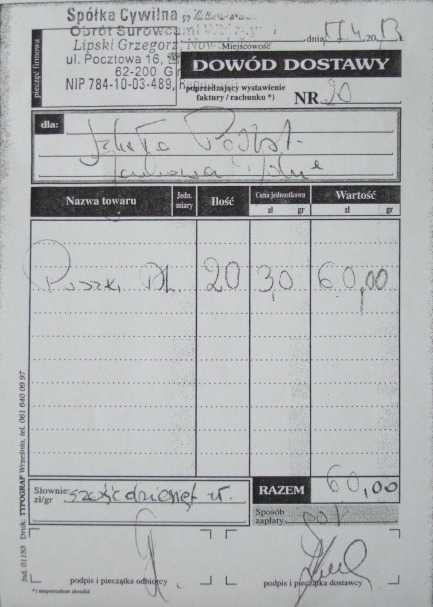 Spółka Cywilna
Obrót Surowcami
Lipski Grzegorz, Now
ul. Pocztowa 16,
62-200 G
NIP 784-10-03-489,
pieczęć firmowa
Miejscowość
dnia
DOWÓD DOSTAWY
poprzedzający wystawienie
faktury / rachunku *)
NR 20
dla: Szkoła Podst.
Nazwa towaru Jedn. miary Ilość Cena jednostkowa zł gr Wartość zł gr
Puszki 20 3,0 60,00
RAZEM 60,00
Słownie zł/gr sześćdziesiąt zł.
Sposób zapłaty
podpis i pieczątka odbiorcy
podpis i pieczątka dostawcy
*) niepotrzebne skreślić
Druk: TYPOGRAF Września, tel. 061 640 09 97